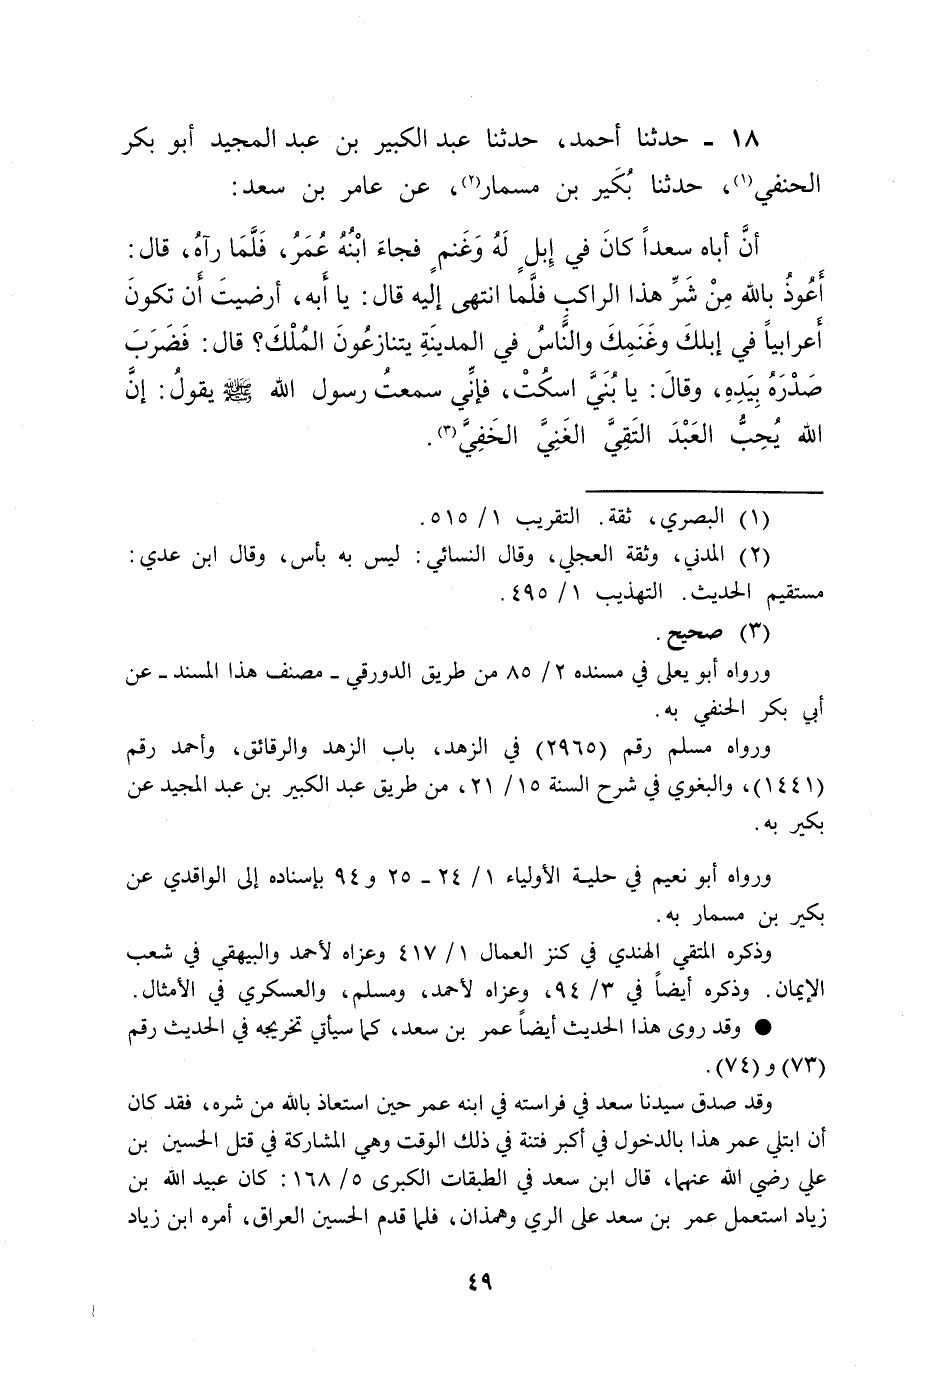 ١٨ - حدثنا أحمد، حدثنا عبد الكبير بن عبد المجيد أبو بكر
الحنفي(١)، حدثنا بُكَير بن مسمار(٢)، عن عامر بن سعد:
أنَّ أباه سعداً كانَ في إبلٍ لَهُ وَغَنمٍ فجاءَ ابْنُهُ عُمَرُ، فَلَّمَا رآهُ، قال:
أَعُوذُ بالله مِنْ شَرِّ هذا الراكبِ فلَّما انتهى إليه قال: يا أَبه، أرضيتَ أَن تكونَ
أَعرابياً في إبلكَ وغَنَمِكَ والنَّاسُ في المدينَةِ يتنازعُونَ المُلْكَ؟ قال: فَضَرَبَ
صَدْرَهُ بِيَدِهِ، وقالَ: يا بُنَيَّ اسكُتْ، فإنِّي سمعتُ رسول الله ﷺ يقولُ: إنَّ
الله يُحِبُّ العَبْدَ التَقِيَّ الغَنِيَّ الخَفِيَّ(٣).
(١) البصري، ثقة. التقريب ١/ ٥١٥.
(٢) المدني، وثقة العجلي، وقال النسائي: ليس به بأس، وقال ابن عدي:
مستقيم الحديث. التهذيب ١/ ٤٩٥.
(٣) صحيح.
ورواه أبو يعلى في مسنده ٢/ ٨٥ من طريق الدورقي - مصنف هذا المسند - عن
أبي بكر الحنفي به.
ورواه مسلم رقم (٢٩٦٥) في الزهد، باب الزهد والرقائق، وأحمد رقم
(١٤٤١)، والبغوي في شرح السنة ١٥/ ٢١، من طريق عبد الكبير بن عبد المجيد عن
بكير به.
ورواه أبو نعيم في حلية الأولياء ١/ ٢٤ - ٢٥ و ٩٤ بإسناده إلى الواقدي عن
بكير بن مسمار به.
وذكره المتقي الهندي في كنز العمال ١/ ٤١٧ وعزاه لأحمد والبيهقي في شعب
الإيمان. وذكره أيضاً في ٣/ ٩٤، وعزاه لأحمد، ومسلم، والعسكري في الأمثال.
● وقد روى هذا الحديث أيضاً عمر بن سعد، كما سيأتي تخريجه في الحديث رقم
(٧٣) و (٧٤).
وقد صدق سيدنا سعد في فراسته في ابنه عمر حين استعاذ بالله من شره، فقد كان
أن ابتلي عمر هذا بالدخول في أكبر فتنة في ذلك الوقت وهي المشاركة في قتل الحسين بن
علي رضي الله عنهما، قال ابن سعد في الطبقات الكبرى ٥/ ١٦٨: كان عبيد الله بن
زياد استعمل عمر بن سعد على الري وهمذان، فلما قدم الحسين العراق، أمره ابن زياد
٤٩